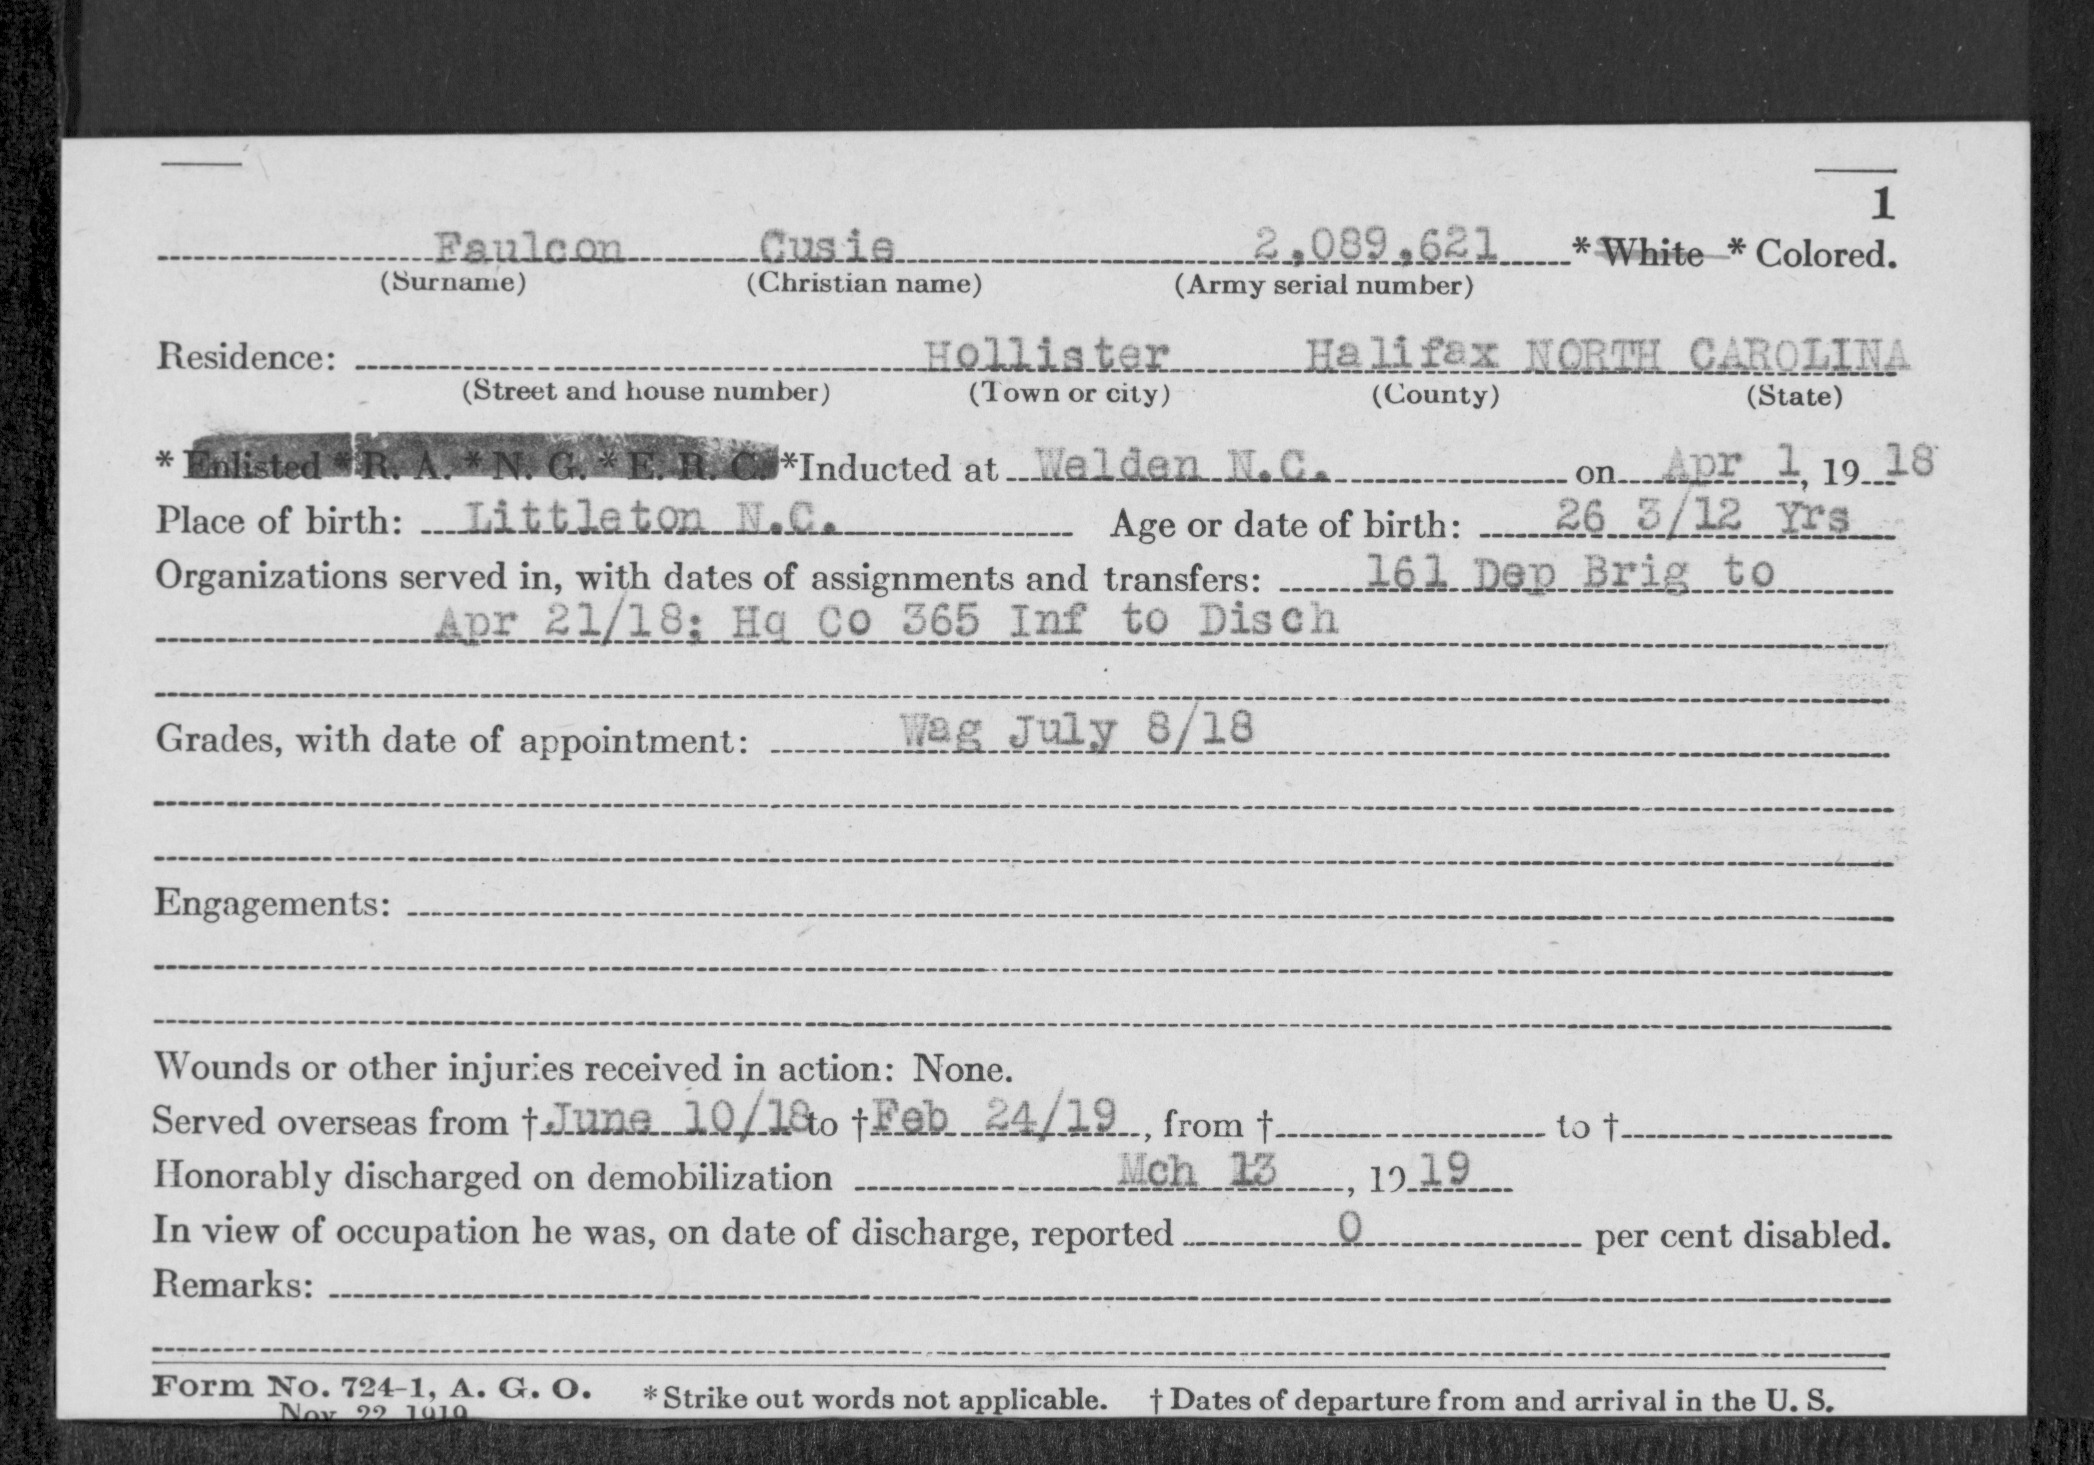 1
Faulcon Cusie 2,089,621 * White * Colored.
(Surname) (Christian name) (Army serial number)
Residence: Hollister Halifax NORTH CAROLINA
(Street and house number) (Town or city) (County) (State)
* Enlisted * R. A. * N. G. * E. R. C. *Inducted at Welden N.C. on Apr 1, 19 18
Place of birth: Littleton N.C. Age or date of birth: 26 3/12 Yrs
Organizations served in, with dates of assignments and transfers: 161 Dep Brig to
Apr 21/18; Hq Co 365 Inf to Disch
Grades, with date of appointment: Wag July 8/18
Engagements:
Wounds or other injuries received in action: None.
Served overseas from † June 10/18 to † Feb 24/19, from † to †
Honorably discharged on demobilization Mch 13, 19 19
In view of occupation he was, on date of discharge, reported 0 per cent disabled.
Remarks:
Form No. 724-1, A. G. O. * Strike out words not applicable. † Dates of departure from and arrival in the U. S.
Nov. 22, 1919